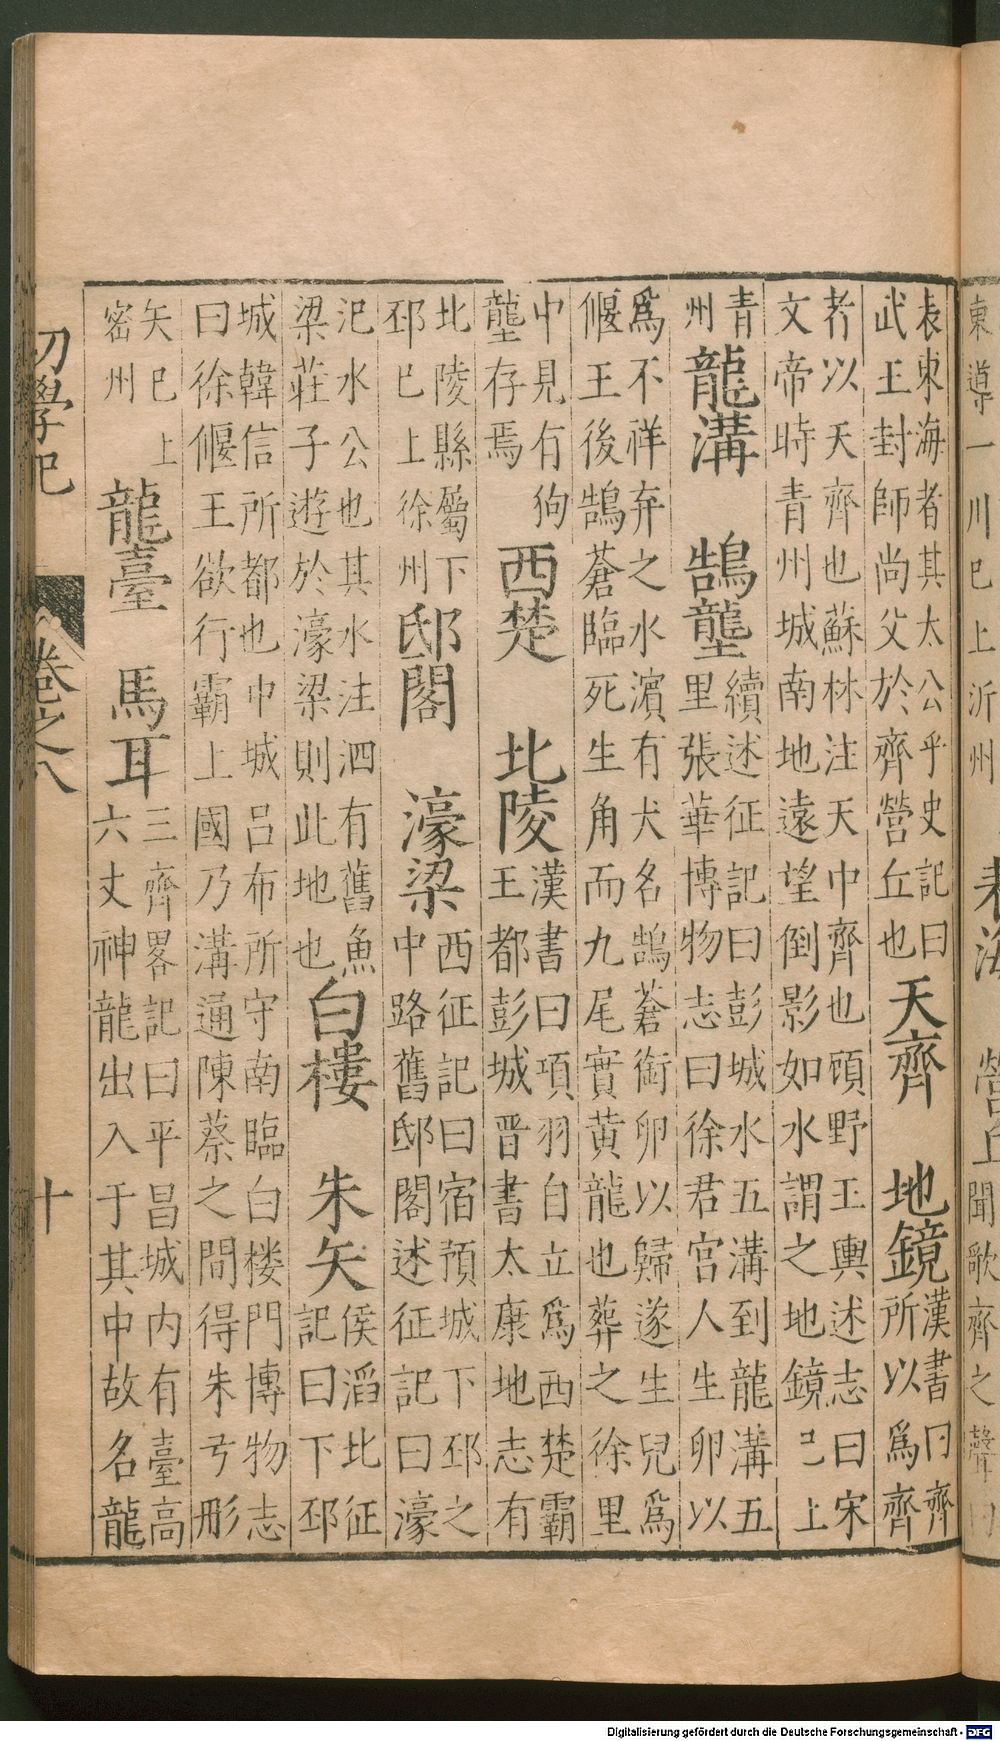 東導一川已上沂州 表海 營丘 聞歌齊之聲曰
表東海者其太公乎史記曰
武王封師尚父於齊營丘也
天齊 地鏡
漢書曰齊
所以爲齊
者以天齊也蘇林注天中齊也顧野王輿述志曰宋
文帝時青州城南地遠望倒影如水謂之地鏡已上
青
州
龍溝 鵠壟
續述征記曰彭城水五溝到龍溝五
里張華博物志曰徐君宮人生卵以
爲不祥弃之水濱有犬名鵠蒼銜卵以歸遂生兒爲
偃王後鵠蒼臨死生角而九尾實黄龍也葬之徐里
中見有狗
壟存焉
西楚 北陵
漢書曰項羽自立爲西楚霸
王都彭城晋書太康地志有
北陵縣屬下
邳已上徐州
邸閣 濠梁
西征記曰宿預城下邳之
中路舊邸閣述征記曰濠
汜水公也其水注泗有舊魚
梁莊子遊於濠梁則此地也
白樓 朱矢
侯滔北征
記曰下邳
城韓信所都也中城呂布所守南臨白楼門博物志
曰徐偃王欲行霸上國乃溝通陳蔡之間得朱弓形
矢已上
密州
龍臺 馬耳
三齊畧記曰平昌城内有臺高
六丈神龍出入于其中故名龍
初學記 卷之八 十
Digitalisierung gefördert durch die Deutsche Forschungsgemeinschaft - DFG